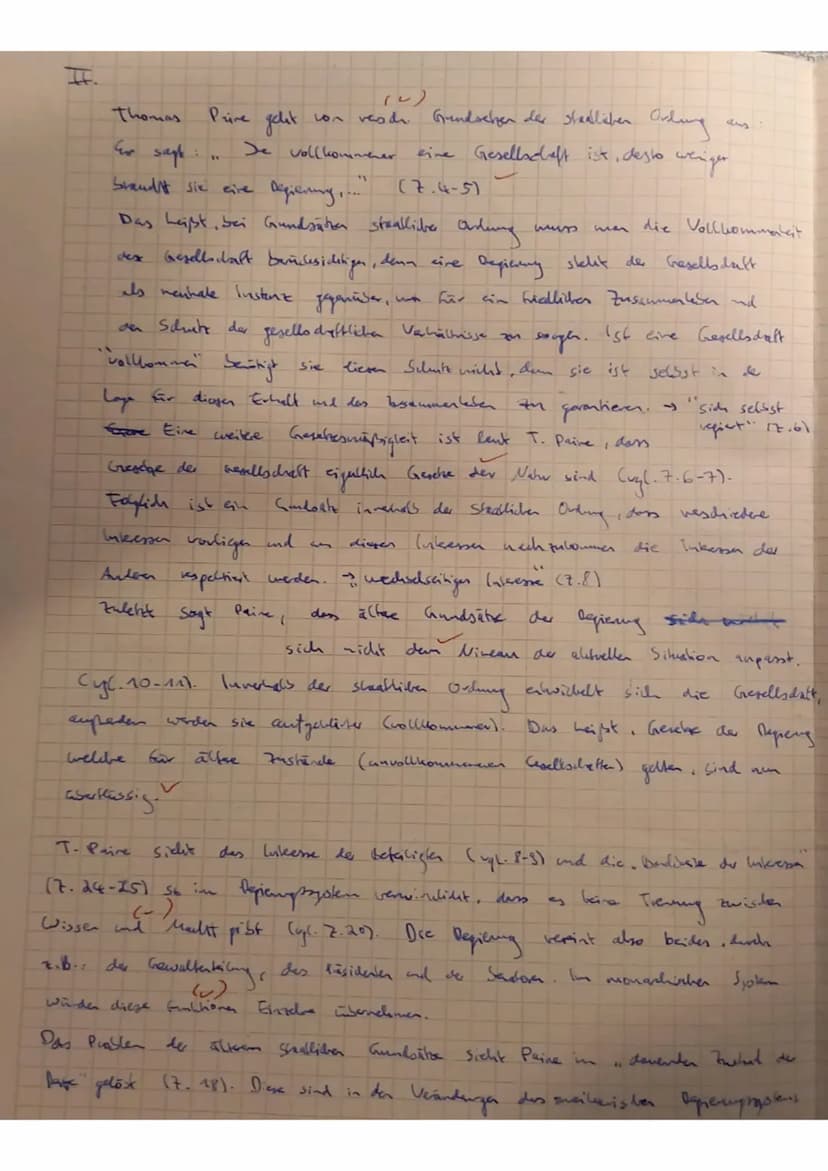 II.
Thomas Paine geht von versch. Grundsätzen der staatlichen Ordnung aus:
Er sagt: „ Je vollkommener eine Gesellschaft ist, desto weniger
braucht sie eine Regierung,..." (Z.4-5)
Das heißt, bei Grundsätzen staatlicher Ordnung muss man die Vollkommenheit
der Gesellschaft berücksichtigen, denn eine Regierung steht der Gesellschaft
als neutrale Instanz gegenüber, um für ein friedliches Zusammenleben und
den Schutz der gesellschaftlichen Verhältnisse zu sorgen. Ist eine Gesellschaft
"vollkommen" benötigt sie diesen Schutz nicht, denn sie ist selbst in der
Lage für diesen Erhalt und das Zusammenleben zu garantieren. → "sich selbst
regiert" (Z.6)
Eine weitere Gesetzesmäßigkeit ist laut T. Paine, dass
Gesetze der Gesellschaft eigentlich Gesetze der Natur sind (vgl. Z.6-7).
Folglich ist ein Grundsatz innerhalb der staatlichen Ordnung, dass verschiedene
Interessen vorliegen und um diesen Interessen nachzukommen die Interessen der
Anderen respektiert werden. → „wechselseitigen Interesse" (Z.8)
Zuletzt sagt Paine, dass ältere Grundsätze der Regierung
sich nicht dem Niveau der aktuellen Situation anpasst.
(vgl. 10-11). Innerhalb der staatlichen Ordnung entwickelt sich die Gesellschaft,
außerdem werden sie aufgeklärter (vollkommener). Das heißt, Gesetze der Regierung
welche für ältere Zustände (unvollkommenere Gesellschaften) galten, sind nun
überflüssig.
T. Paine sieht das Interesse der Beteiligten (vgl. 8-9) und die der Interessen"
(Z. 24-25) im Regierungssystem verwirklicht, dass es keine Trennung zwischen
Wissen und Macht gibt (vgl. Z.20). Die Regierung vereint also beides, durch
z.B.: der Gewaltenteilung, des Präsidenten und der Senatoren. Im monarchischen System
würden diese Funktionen Einzelne übernehmen.
Das Problem der älteren staatlichen Grundsätze sieht Paine im „dauernden Zustand der
Reife" gelöst (Z. 18). Diese sind in den Veränderungen des amerikanischen Regierungssystems